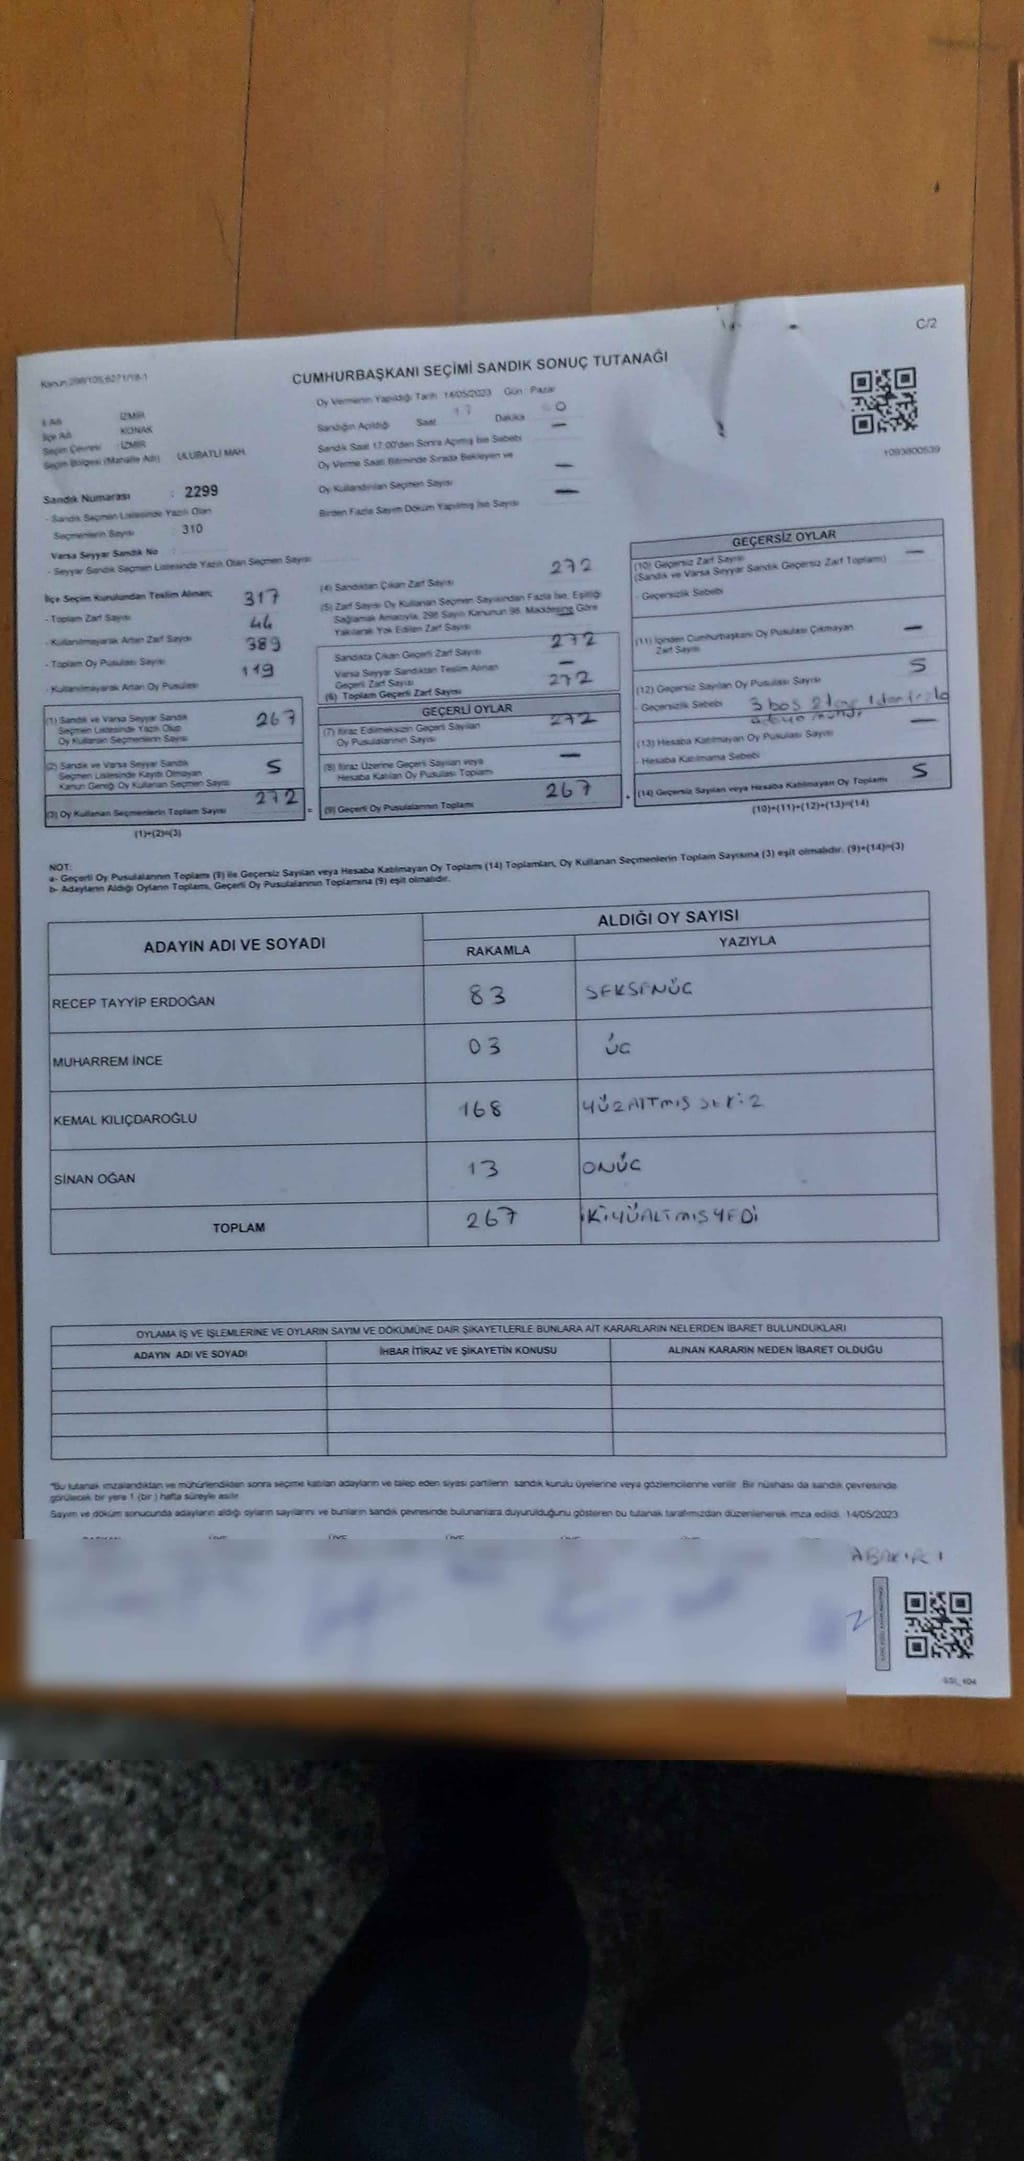 C/2
Kanun:298/105,6271/18-1
CUMHURBAŞKANI SEÇİMİ SANDIK SONUÇ TUTANAĞI
İl Adı İZMİR
İlçe Adı KONAK
Seçim Çevresi : İZMİR
Seçim Bölgesi (Mahalle Adı) ULUBATLI MAH.
Sandık Numarası : 2299
- Sandık Seçmen Listesinde Yazılı Olan
Seçmenlerin Sayısı : 310
Varsa Seyyar Sandık No :
- Seyyar Sandık Seçmen Listesinde Yazılı Olan Seçmen Sayısı
Oy Vermenin Yapıldığı Tarih 14/05/2023 Gün : Pazar
Sandığın Açıldığı Saat 17 Dakika
Sandık Saat 17:00'den Sonra Açılmış İse Sebebi —
Oy Verme Saati Bitiminde Sırada Bekleyen ve
Oy Kullandırılan Seçmen Sayısı —
Birden Fazla Sayım Döküm Yapılmış İse Sayısı —
1093800539
İlçe Seçim Kurulundan Teslim Alınan;
- Toplam Zarf Sayısı 317
- Kullanılmayarak Artan Zarf Sayısı 44
- Toplam Oy Pusulası Sayısı 389
- Kullanılmayarak Artan Oy Pusulası 119
(1) Sandık ve Varsa Seyyar Sandık
Seçmen Listesinde Yazılı Olup
Oy Kullanan Seçmenlerin Sayısı 267
(2) Sandık ve Varsa Seyyar Sandık
Seçmen Listesinde Kayıtlı Olmayan
Kanun Gereği Oy Kullanan Seçmen Sayısı 5
(3) Oy Kullanan Seçmenlerin Toplam Sayısı 272 =
(1)+(2)=(3)
(4) Sandıktan Çıkan Zarf Sayısı 272
(5) Zarf Sayısı Oy Kullanan Seçmen Sayısından Fazla İse, Eşitliği
Sağlamak Amacıyla, 298 Sayılı Kanunun 98. Maddesine Göre
Yakılarak Yok Edilen Zarf Sayısı —
Sandıkta Çıkan Geçerli Zarf Sayısı 272
Varsa Seyyar Sandıktan Teslim Alınan
Geçerli Zarf Sayısı —
(6) Toplam Geçerli Zarf Sayısı 272
GEÇERLİ OYLAR
(7) İtiraz Edilmeksizin Geçerli Sayılan
Oy Pusulalarının Sayısı 272
(8) İtiraz Üzerine Geçerli Sayılan veya
Hesaba Katılan Oy Pusulası Toplamı —
(9) Geçerli Oy Pusulalarının Toplamı 267 +
GEÇERSİZ OYLAR
(10) Geçersiz Zarf Sayısı —
(Sandık ve Varsa Seyyar Sandık Geçersiz Zarf Toplamı)
- Geçersizlik Sebebi
(11) İçinden Cumhurbaşkanı Oy Pusulası Çıkmayan
Zarf Sayısı —
(12) Geçersiz Sayılan Oy Pusulası Sayısı 5
- Geçersizlik Sebebi 3 boş 2
(13) Hesaba Katılmayan Oy Pusulası Sayısı —
- Hesaba Katılmama Sebebi
(14) Geçersiz Sayılan veya Hesaba Katılmayan Oy Toplamı 5
(10)+(11)+(12)+(13)=(14)
NOT:
a- Geçerli Oy Pusulalarının Toplamı (9) ile Geçersiz Sayılan veya Hesaba Katılmayan Oy Toplamı (14) Toplamları, Oy Kullanan Seçmenlerin Toplam Sayısına (3) eşit olmalıdır. (9)+(14)=(3)
b- Adayların Aldığı Oyların Toplamı, Geçerli Oy Pusulalarının Toplamına (9) eşit olmalıdır.
ADAYIN ADI VE SOYADI ALDIĞI OY SAYISI
RAKAMLA YAZIYLA
RECEP TAYYİP ERDOĞAN 83 SEKSENÜÇ
MUHARREM İNCE 03 ÜÇ
KEMAL KILIÇDAROĞLU 168 YÜZALTMIŞ SEKİZ
SİNAN OĞAN 13 ONÜÇ
TOPLAM 267 İKİYÜALTMIŞYEDİ
OYLAMA İŞ VE İŞLEMLERİNE VE OYLARIN SAYIM VE DÖKÜMÜNE DAİR ŞİKAYETLERLE BUNLARA AİT KARARLARIN NELERDEN İBARET BULUNDUKLARI
ADAYIN ADI VE SOYADI İHBAR İTİRAZ VE ŞİKAYETİN KONUSU ALINAN KARARIN NEDEN İBARET OLDUĞU
*Bu tutanak imzalandıktan ve mühürlendikten sonra seçime katılan adayların ve talep eden siyasi partilerin sandık kurulu üyelerine veya gözlemcilerine verilir. Bir nüshası da sandık çevresinde
görülecek bir yere 1 (bir ) hafta süreyle asılır.
Sayım ve döküm sonucunda adayların aldığı oyların sayılarını ve bunların sandık çevresinde bulunanlara duyurulduğunu gösteren bu tutanak tarafımızdan düzenlenerek imza edildi. 14/05/2023